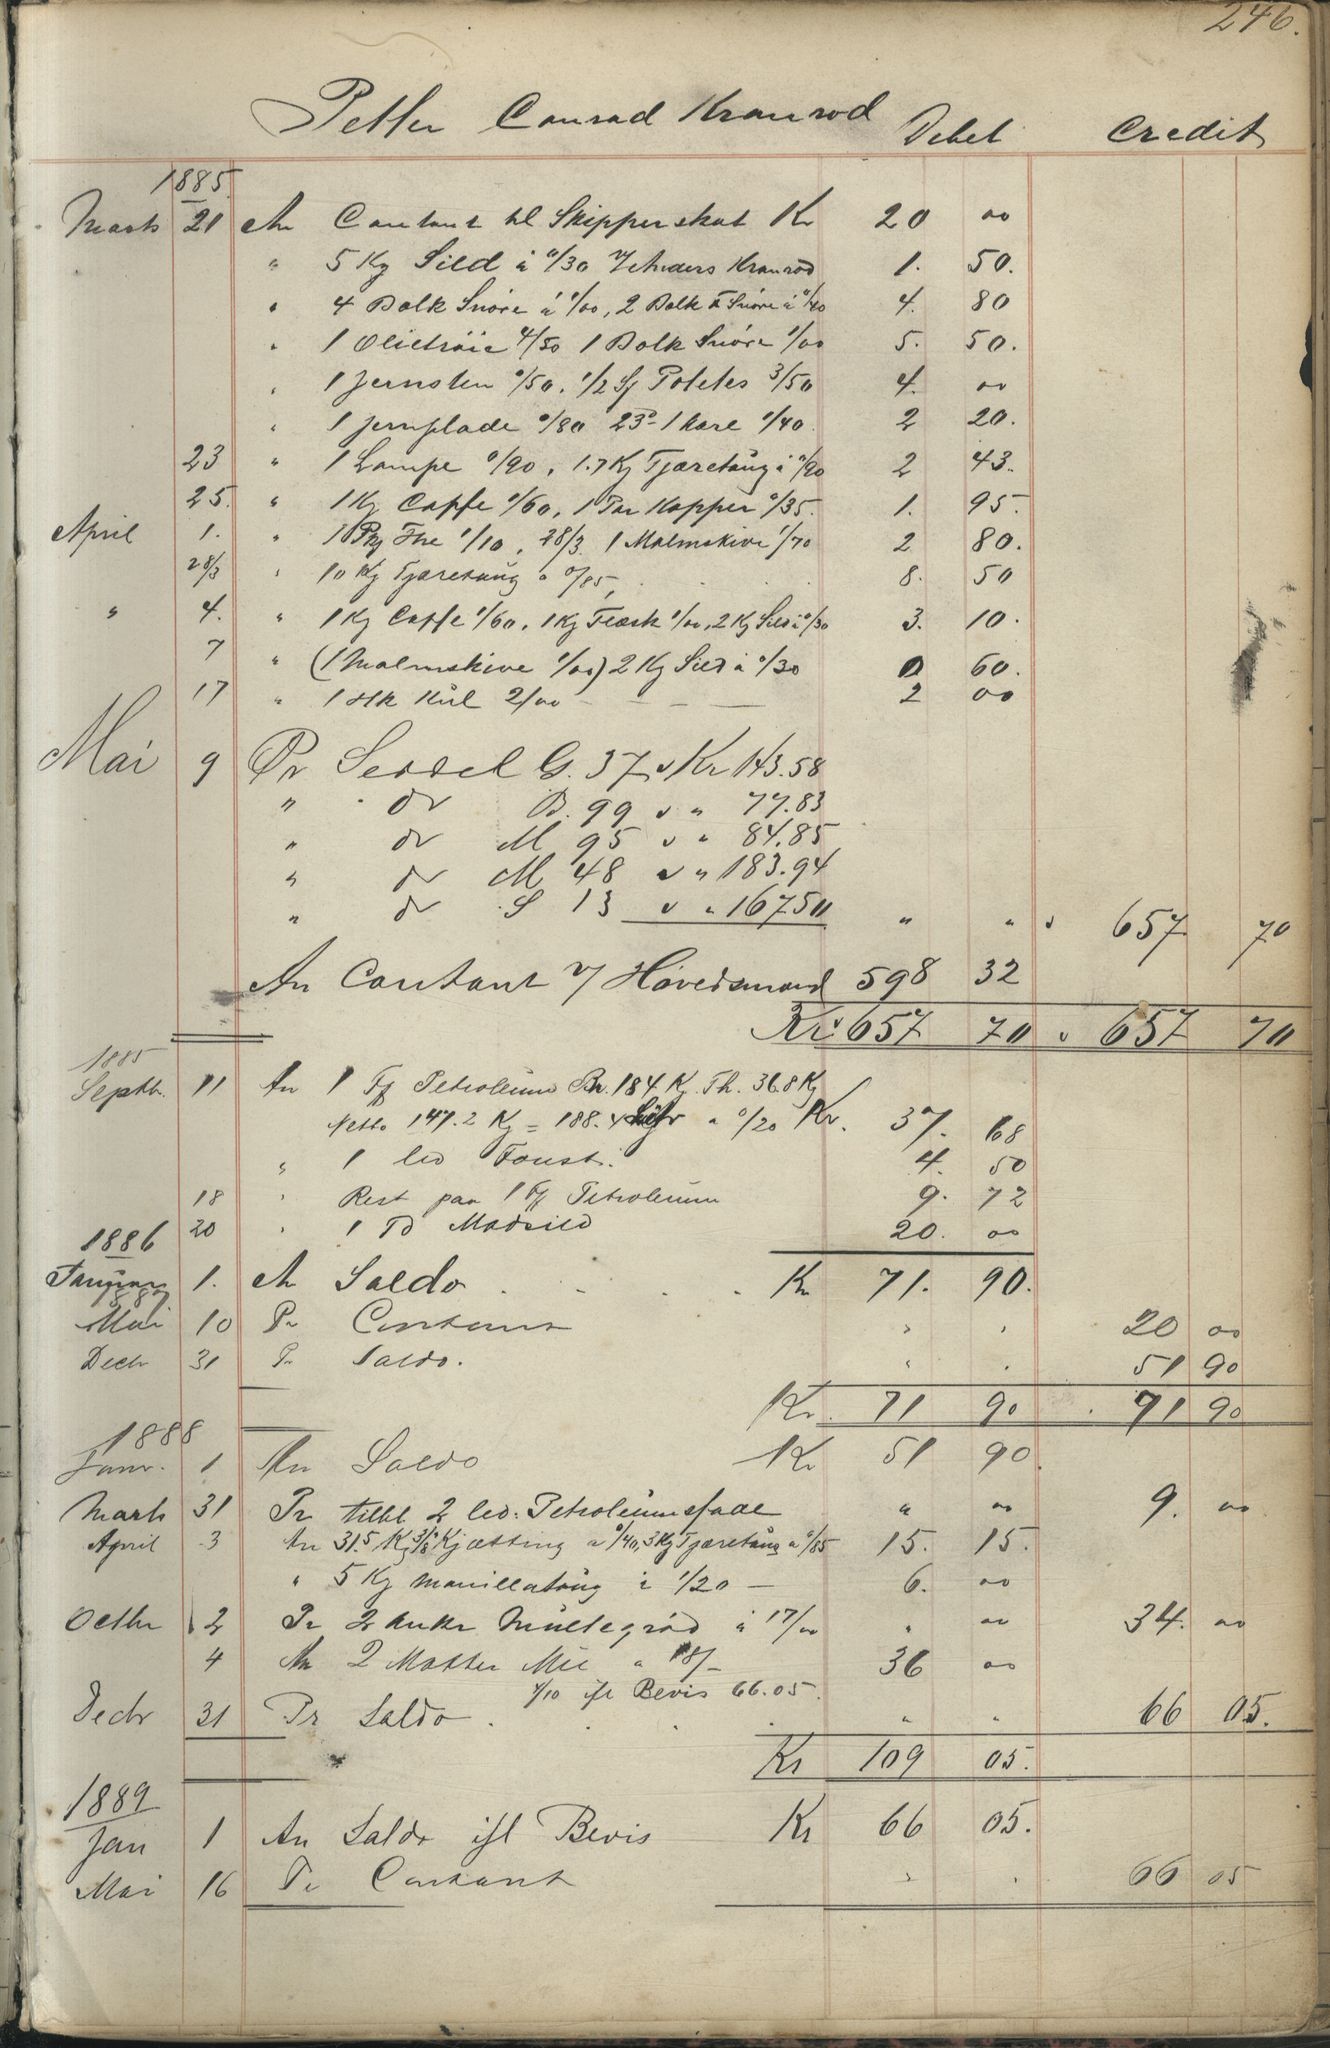 246.
Petter Conrad Kranrod Debet Credit
1885.
Marts 21 An Contant til Skipperskat Kr 20 00
" 5 Kg Sild à 0/30 v/ Anders Kranrod 1. 50.
" 4 Bolk Snöre à 1/00, 2 Bolk Snöre à 0/40 4. 80
" 1 Olietröie 4/50 1 Bolk Snöre 1/00 5. 50.
" 1 Jernsten 0/50, 1/2 Potetes 3/50 4. 00
" 1 Jernplade 0/80 1 0/40 2 20.
23 " 1 Lampe 0/90, 1.7 Kg Tjæretoug à 0/90 2 43.
25. " 1 Kg Caffe 1/60, 1 Par Kopper 0/35. 1. 95.
April 1. " 1 Pk The 1/10, 28/3 1 Malmskive 1/70 2 80.
28/3 " 10 Kg Tjæretoug à 0/85, 8. 50
" 4. " 1 Kg Caffe 1/60, 1 Kg Flæsk 1/00, 2 Kg Sild à 0/30 3. 10.
7 " (1 Malmskive 1/00) 2 Kg Sild à 0/30 0 60.
17 " 1 Hk Kul 2/00 - - - 2 00
Mai 9 Pr Seddel G. 37 v Kr 143.58
" do B. 99 v " 77.83
" do M 95 v " 84.85
" do M 48 v " 183.94
" do S 13 v " 167.50 " " v 657 70
An Contant v/ Hövedsmand 598 32
Kr. 657 70 v 657 70
1885
Septbr. 11 An 1 Ff Petroleum Br. 184 Kg. Th. 36.8 Kg
Netto 147.2 Kg = 188.4 à 0/20 Kr. 37. 68
" 1 led Foust. 4. 50
18 " Rest paa 1 Ff Petroleum 9. 72
20 " 1 Td Madsild 20. 00
1886
Januar 1. An Saldo . . . . Kr 71. 90.
1887
Mai 10 Pr Contant " " 20 00
Decbr 31 Pr Saldo. " " 51 90
Kr. 71 90 . 71 90
1888
Janr. 1 An Saldo Kr 51 90
Marts 31 Pr tilbl 2 led: Petroleumsfade " " 9. 00
April 3 An 31.5 Kg 3/8 Kjætting à 0/40, 3 Kg Tjæretoug à 0/85 15. 15.
" 5 Kg Manillatoug à 1/20 - 6. 00
Octbr 2 Pr 2 Anker Multegröd à 17/00 " 00 34. 00
4 An 2 Matter Mel à 18/- 36 00
4/10 ifl Bevis 66.05.
Decbr 31 Pr Saldo . . . . " " 66 05.
Kr 109 05.
1889
Jan 1 An Saldo ifl Bevis Kr 66 05.
Mai 16 Pr Contant " " 66 05